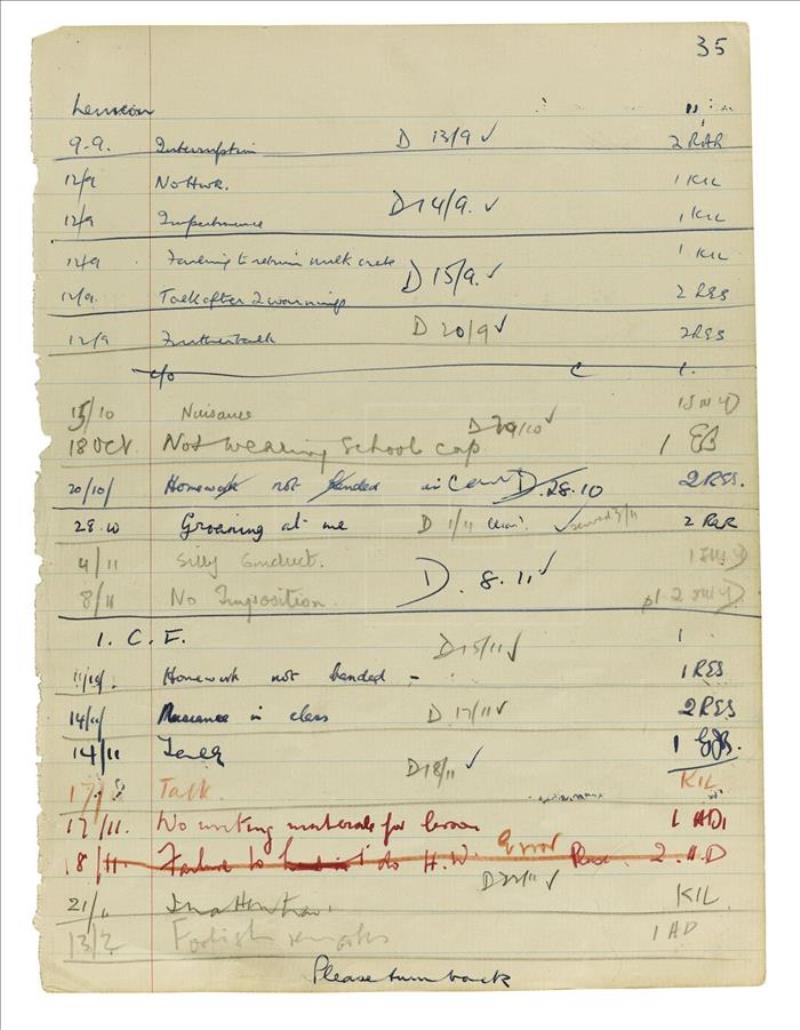 35
Lennon
9-9. Interruption D 13/9 ✓ 2 RAR
12/9 No Hwk. 1 KIL
D 14/9. ✓
12/9 Impertinence 1 KIL
12/9 Failing to return milk crate 1 KIL
D 15/9. ✓
12/9. Talk after 2 warnings 2 RES
12/9 Further talk D 20/9 ✓ 2 RES
c/o C 1.
15/10 Nuisance
18 Oct Not wearing School cap 1 EB
20/10/ Homework not handed in D.28.10 2 RES.
28.10 Groaning at me D 1/11 ✓ 2 RAR
4/11 Silly Conduct.
D. 8.11 ✓
8/11 No Imposition.
1. C. F. 1
D 15/11 ✓
Homework not handed - 1 RES
14/11 Nuisance in class D 17/11 ✓ 2 RES
14/11 1 GJB.
D 18/11 ✓
Talk. KIL
17/11. No writing materials for lesson 1 AD
18/11. Failure to do H.W. Error 2. A.D
D 22/11 ✓
21/11 Inattention. KIL
13/2 Foolish remarks 1 AD
Please turn back